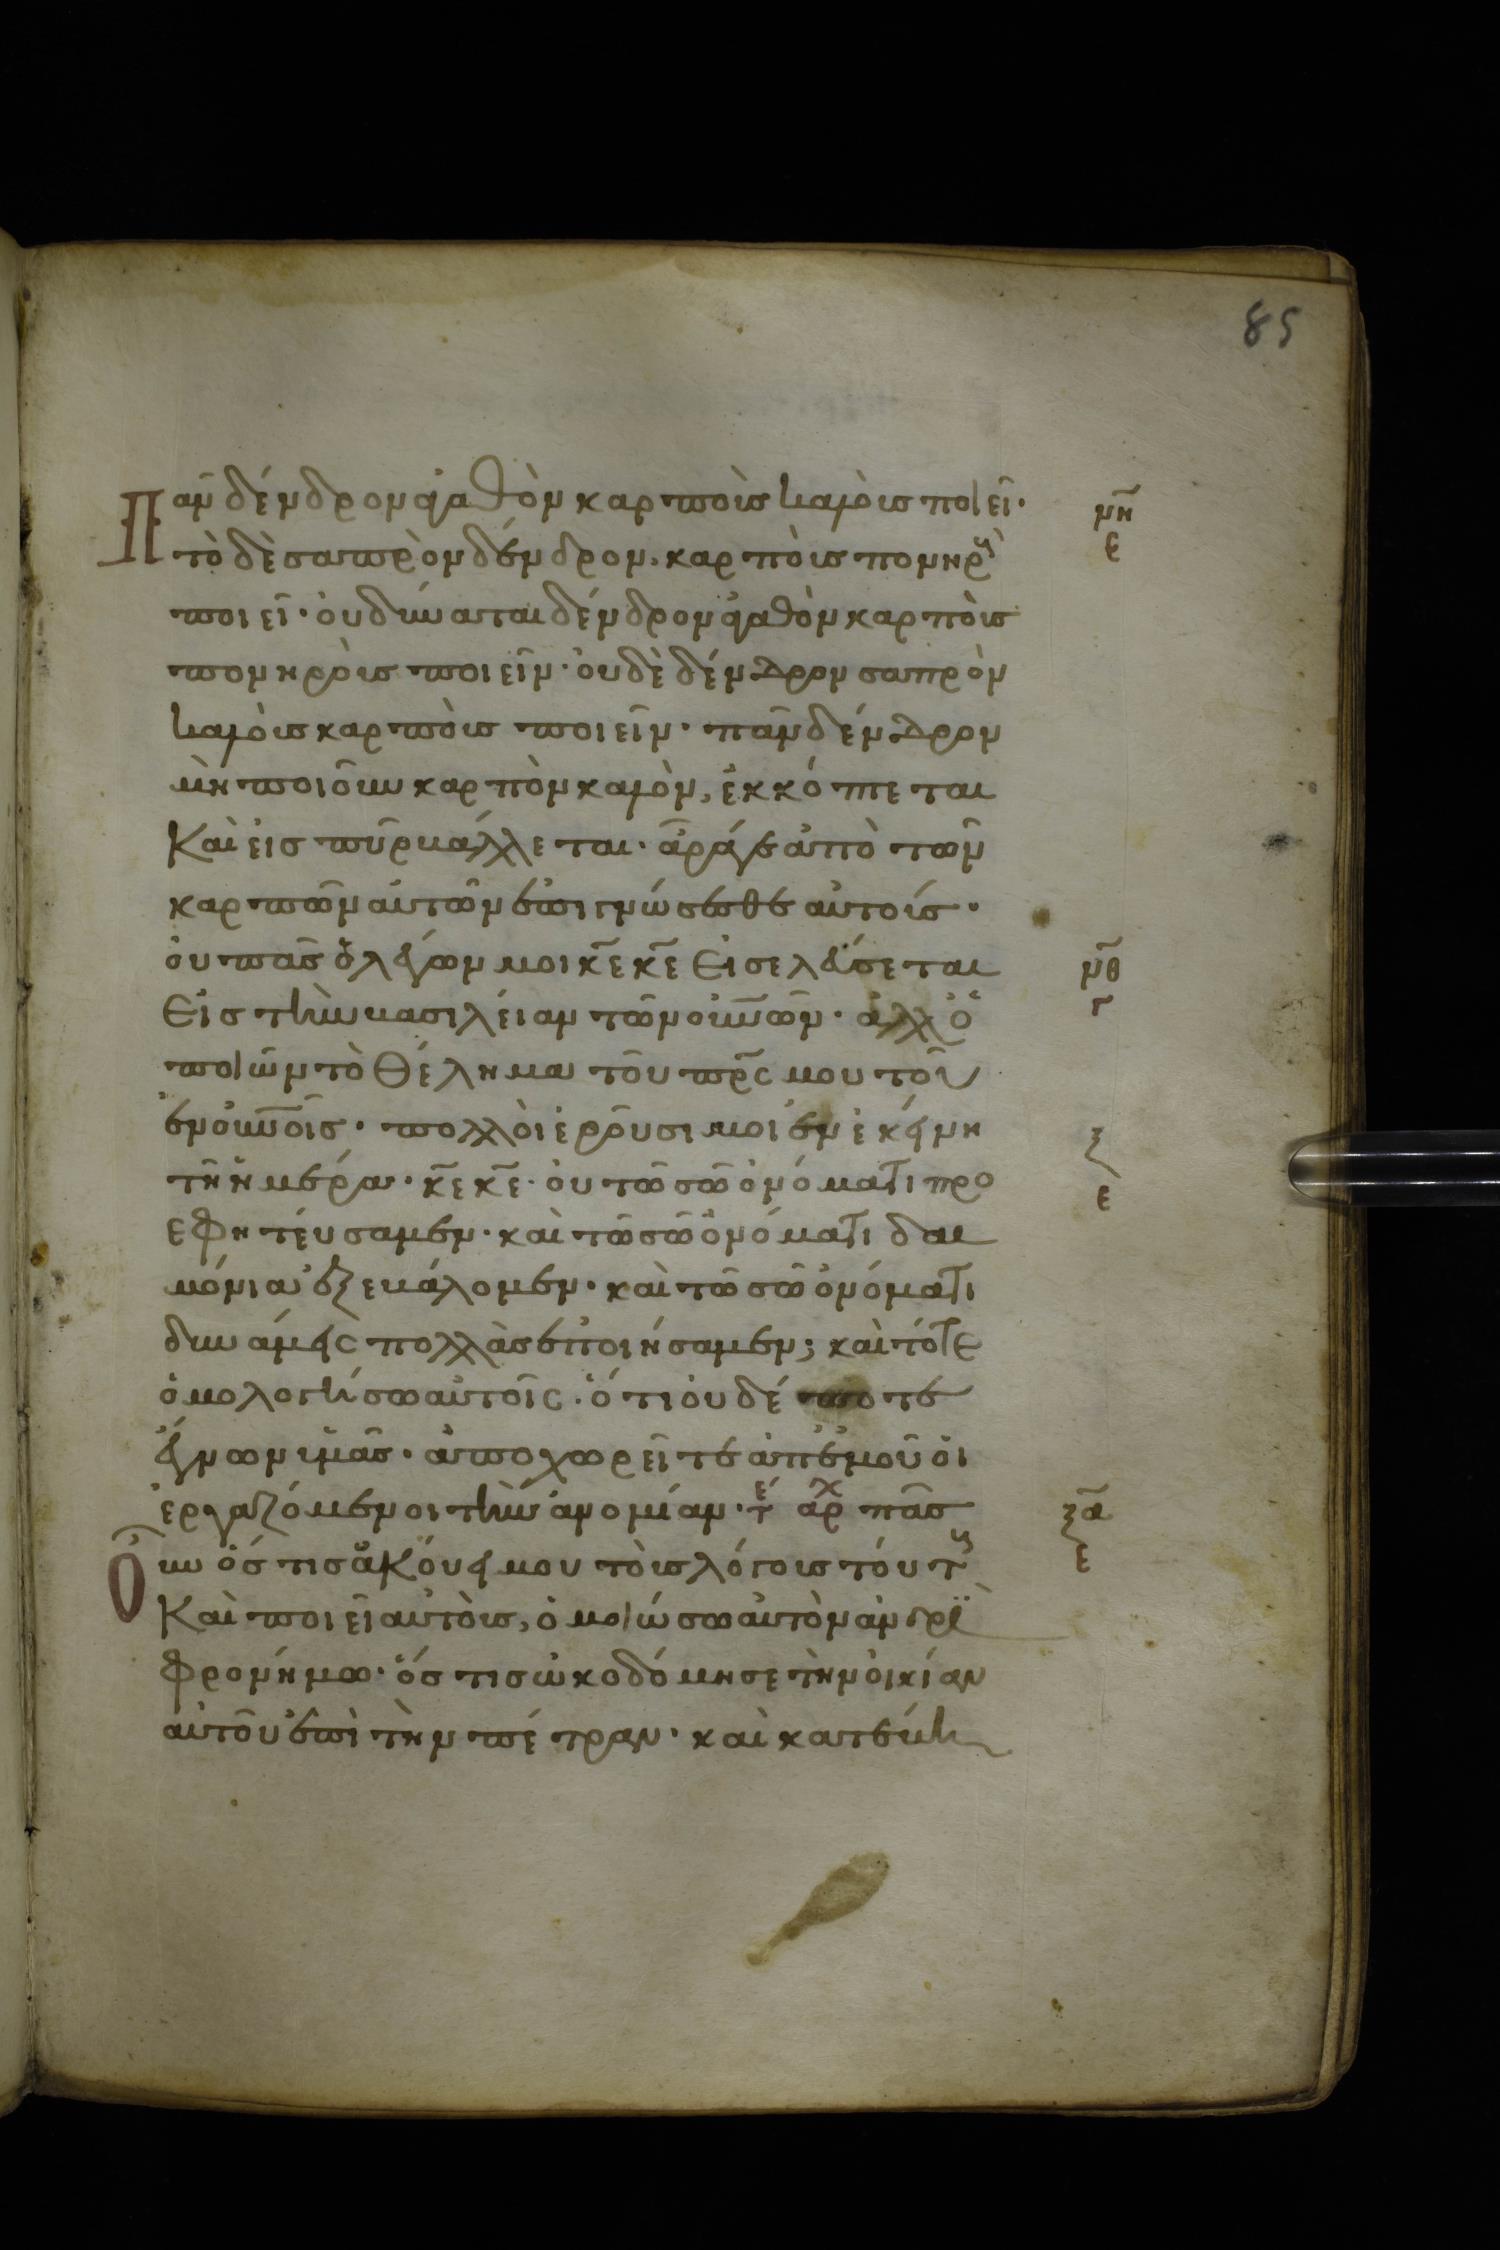 85
Πᾶν δένδρον ἀγαθὸν καρποὺς καλοὺς ποιεῖ· μη
τὸ δὲ σαπρὸν δένδρον, καρποὺς πονηρ(οὺς) ε
ποιεῖ· οὐ δύναται δένδρον ἀγαθὸν καρποὺς
πονηροὺς ποιεῖν· οὐδὲ δένδρον σαπρὸν
καλοὺς καρποὺς ποιεῖν· πᾶν δένδρον
μὴ ποιοῦν καρπὸν καλὸν, ἐκκόπτεται
Καὶ εἰς πῦρ βάλλεται· ἆρά γε ἀπὸ τῶν
καρπῶν αὐτῶν ἐπιγνώσεσθε αὐτούς·
οὐ πᾶς ὁ λέγων μοι κ̅ε κ̅ε εἰσελεύσεται μθ
Εἰς τὴν βασιλείαν τῶν οὐνῶν· ἀλλ ὁ γ
ποιῶν τὸ Θέλημα τοῦ πρ̅ς μου τοῦ
ἐν οὐνοῖς· πολλοὶ ἐροῦσι μοι ἐν ἐκείνη ξ
τῆ ἡμέρα· κ̅ε κ̅ε· οὐ τῶ σῶ ὀνόματι προ ε
εφητεύσαμεν· καὶ τῶ σῶ ὀνόματι δαι
μόνια ἐξεβάλομεν· καὶ τῶ σῶ ὀνόματι
δυνάμεις πολλὰς ἐποιήσαμεν; καὶ τότε
ὁμολογήσω αὐτοῖς· ὅτι οὐδέποτε
ἔγνων ὑμᾶς· ἀποχωρεῖτε ἀπ ἐμοῦ οἱ
ἐργαζόμενοι τὴν ἀνομίαν· τε αρχ πᾶς ξα
Οὖν ὅστις ἀκούει μου τοὺς λόγους τούτ(ους) ε
Καὶ ποιεῖ αὐτοὺς, ὁμοιώσω αὐτὸν ἀνδρὶ
Φρονήμω· ὅστις ὠκοδόμησε τὴν οἰκίαν
αὐτοῦ ἐπὶ τὴν πέτραν· καὶ κατέβη